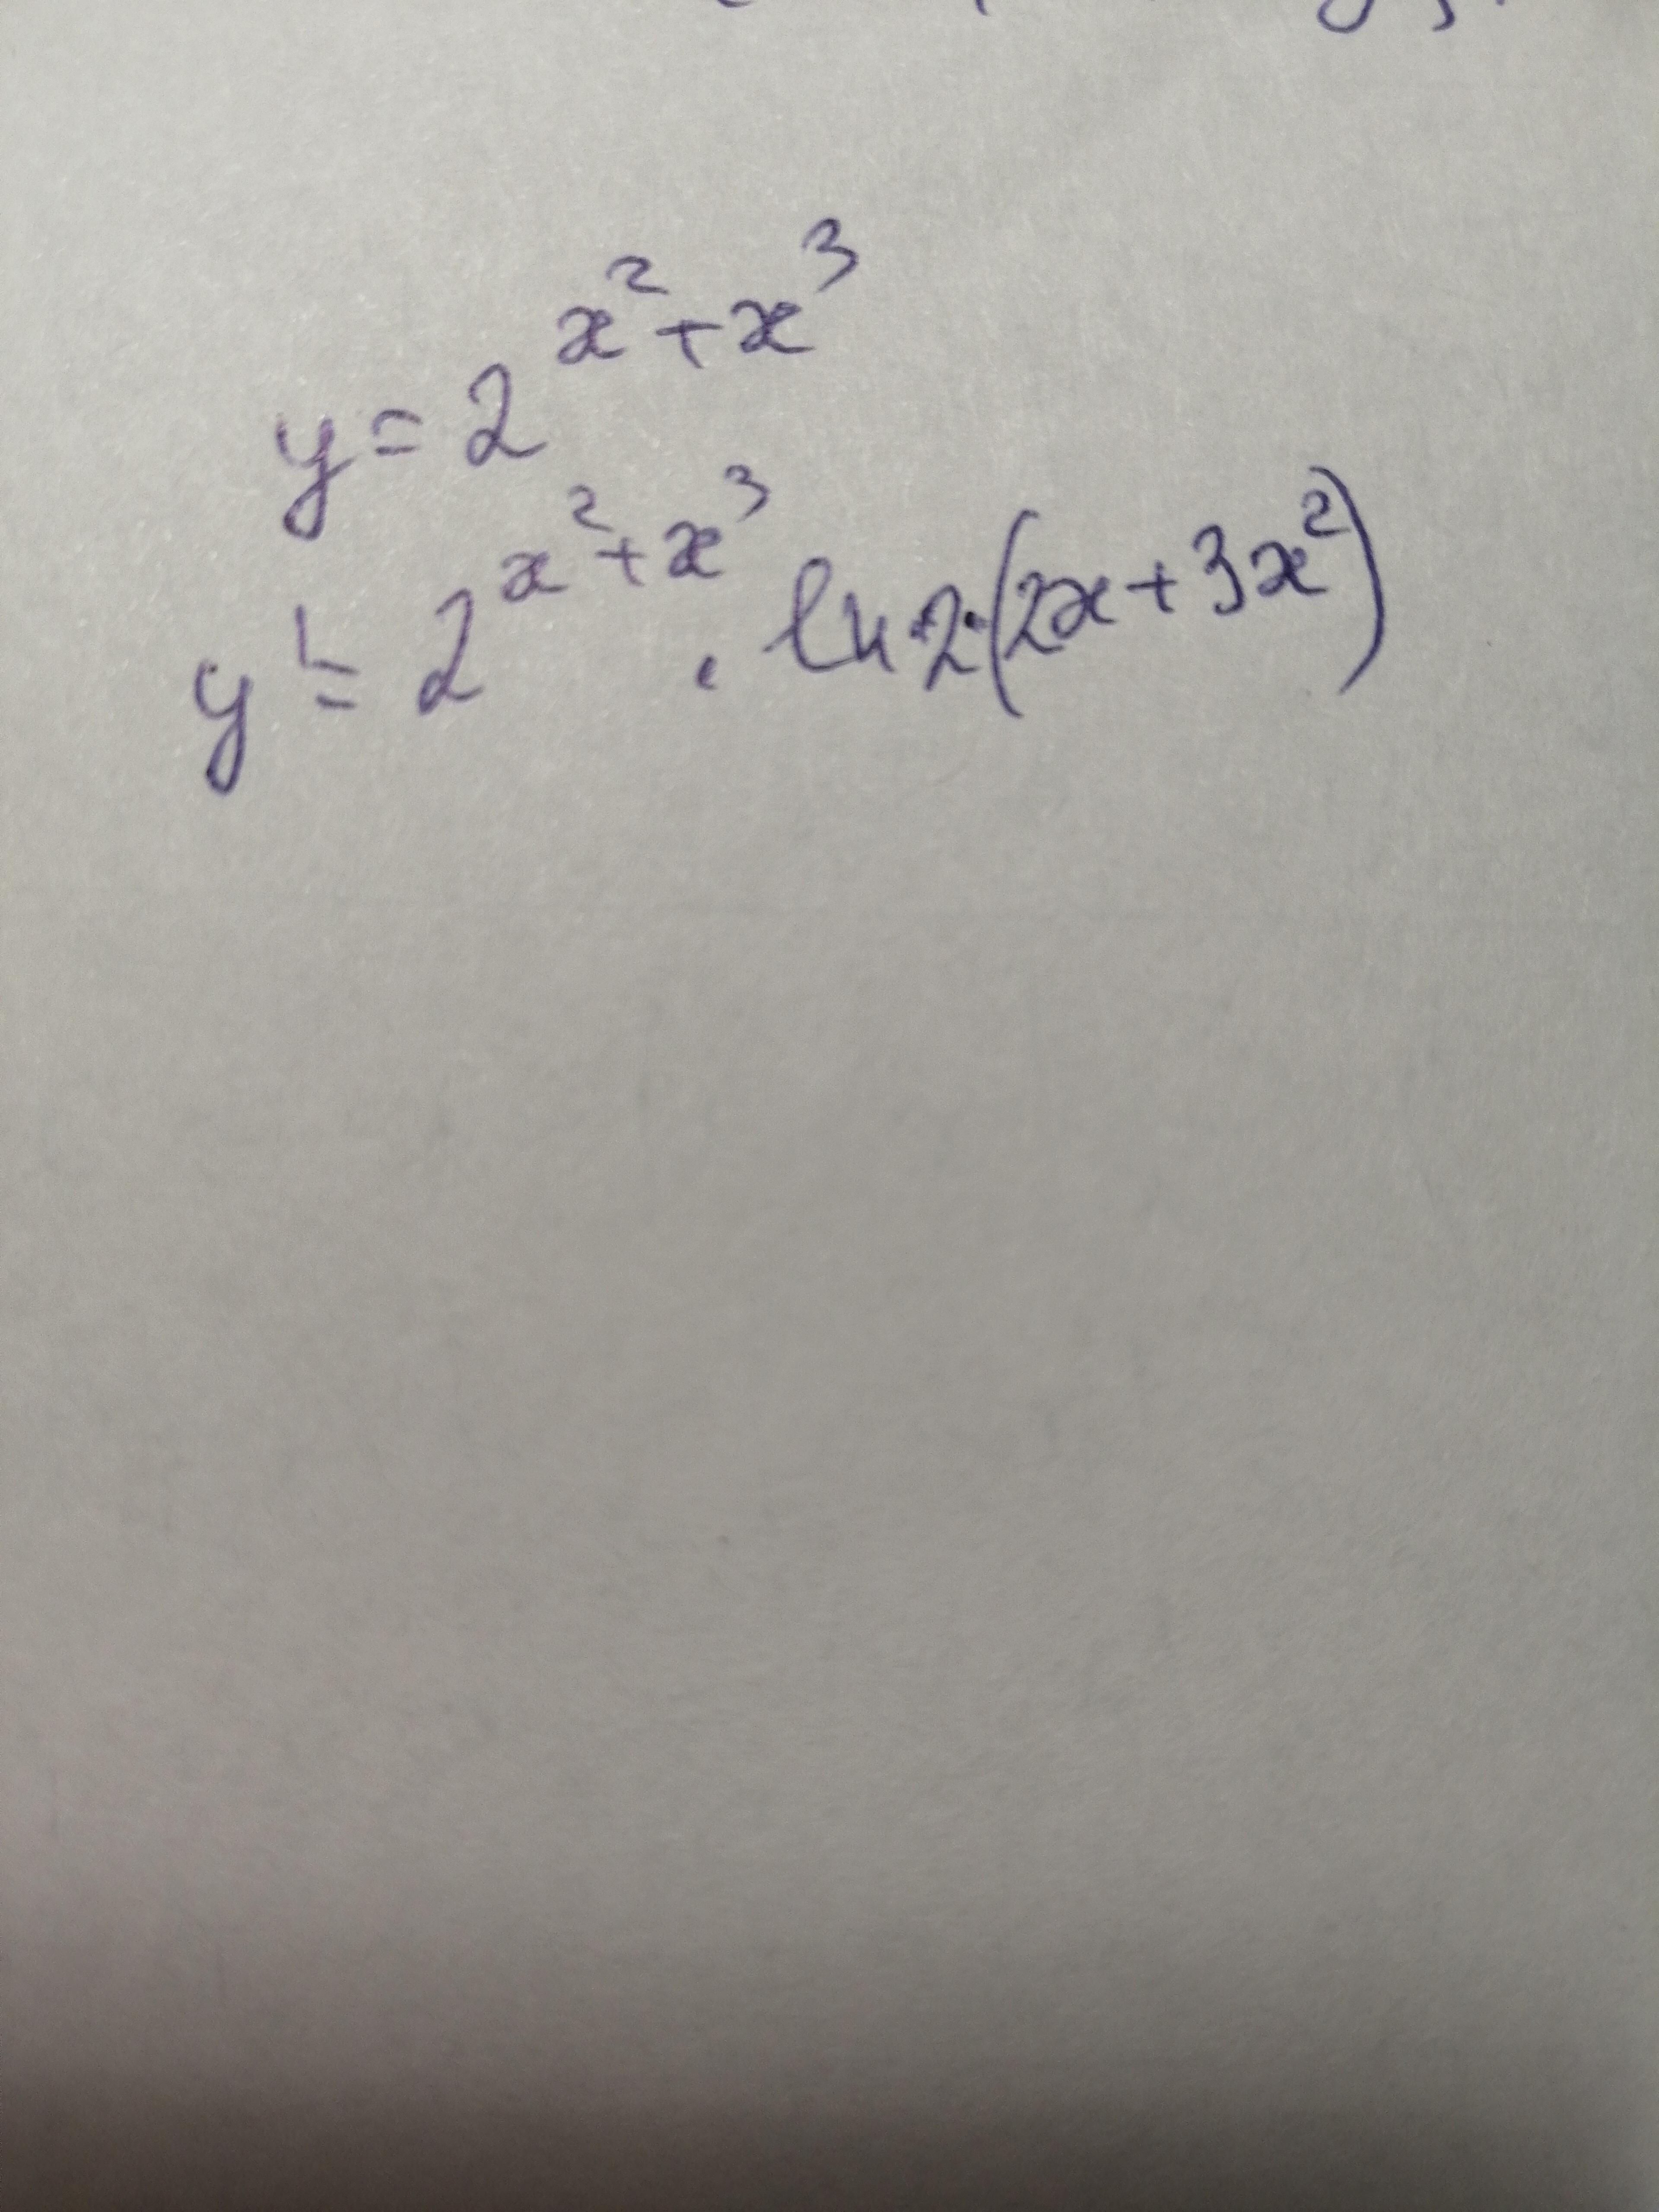 y = 2^{x^2+x^3}
y' = 2^{x^2+x^3} · ln 2·(2x+3x^2)